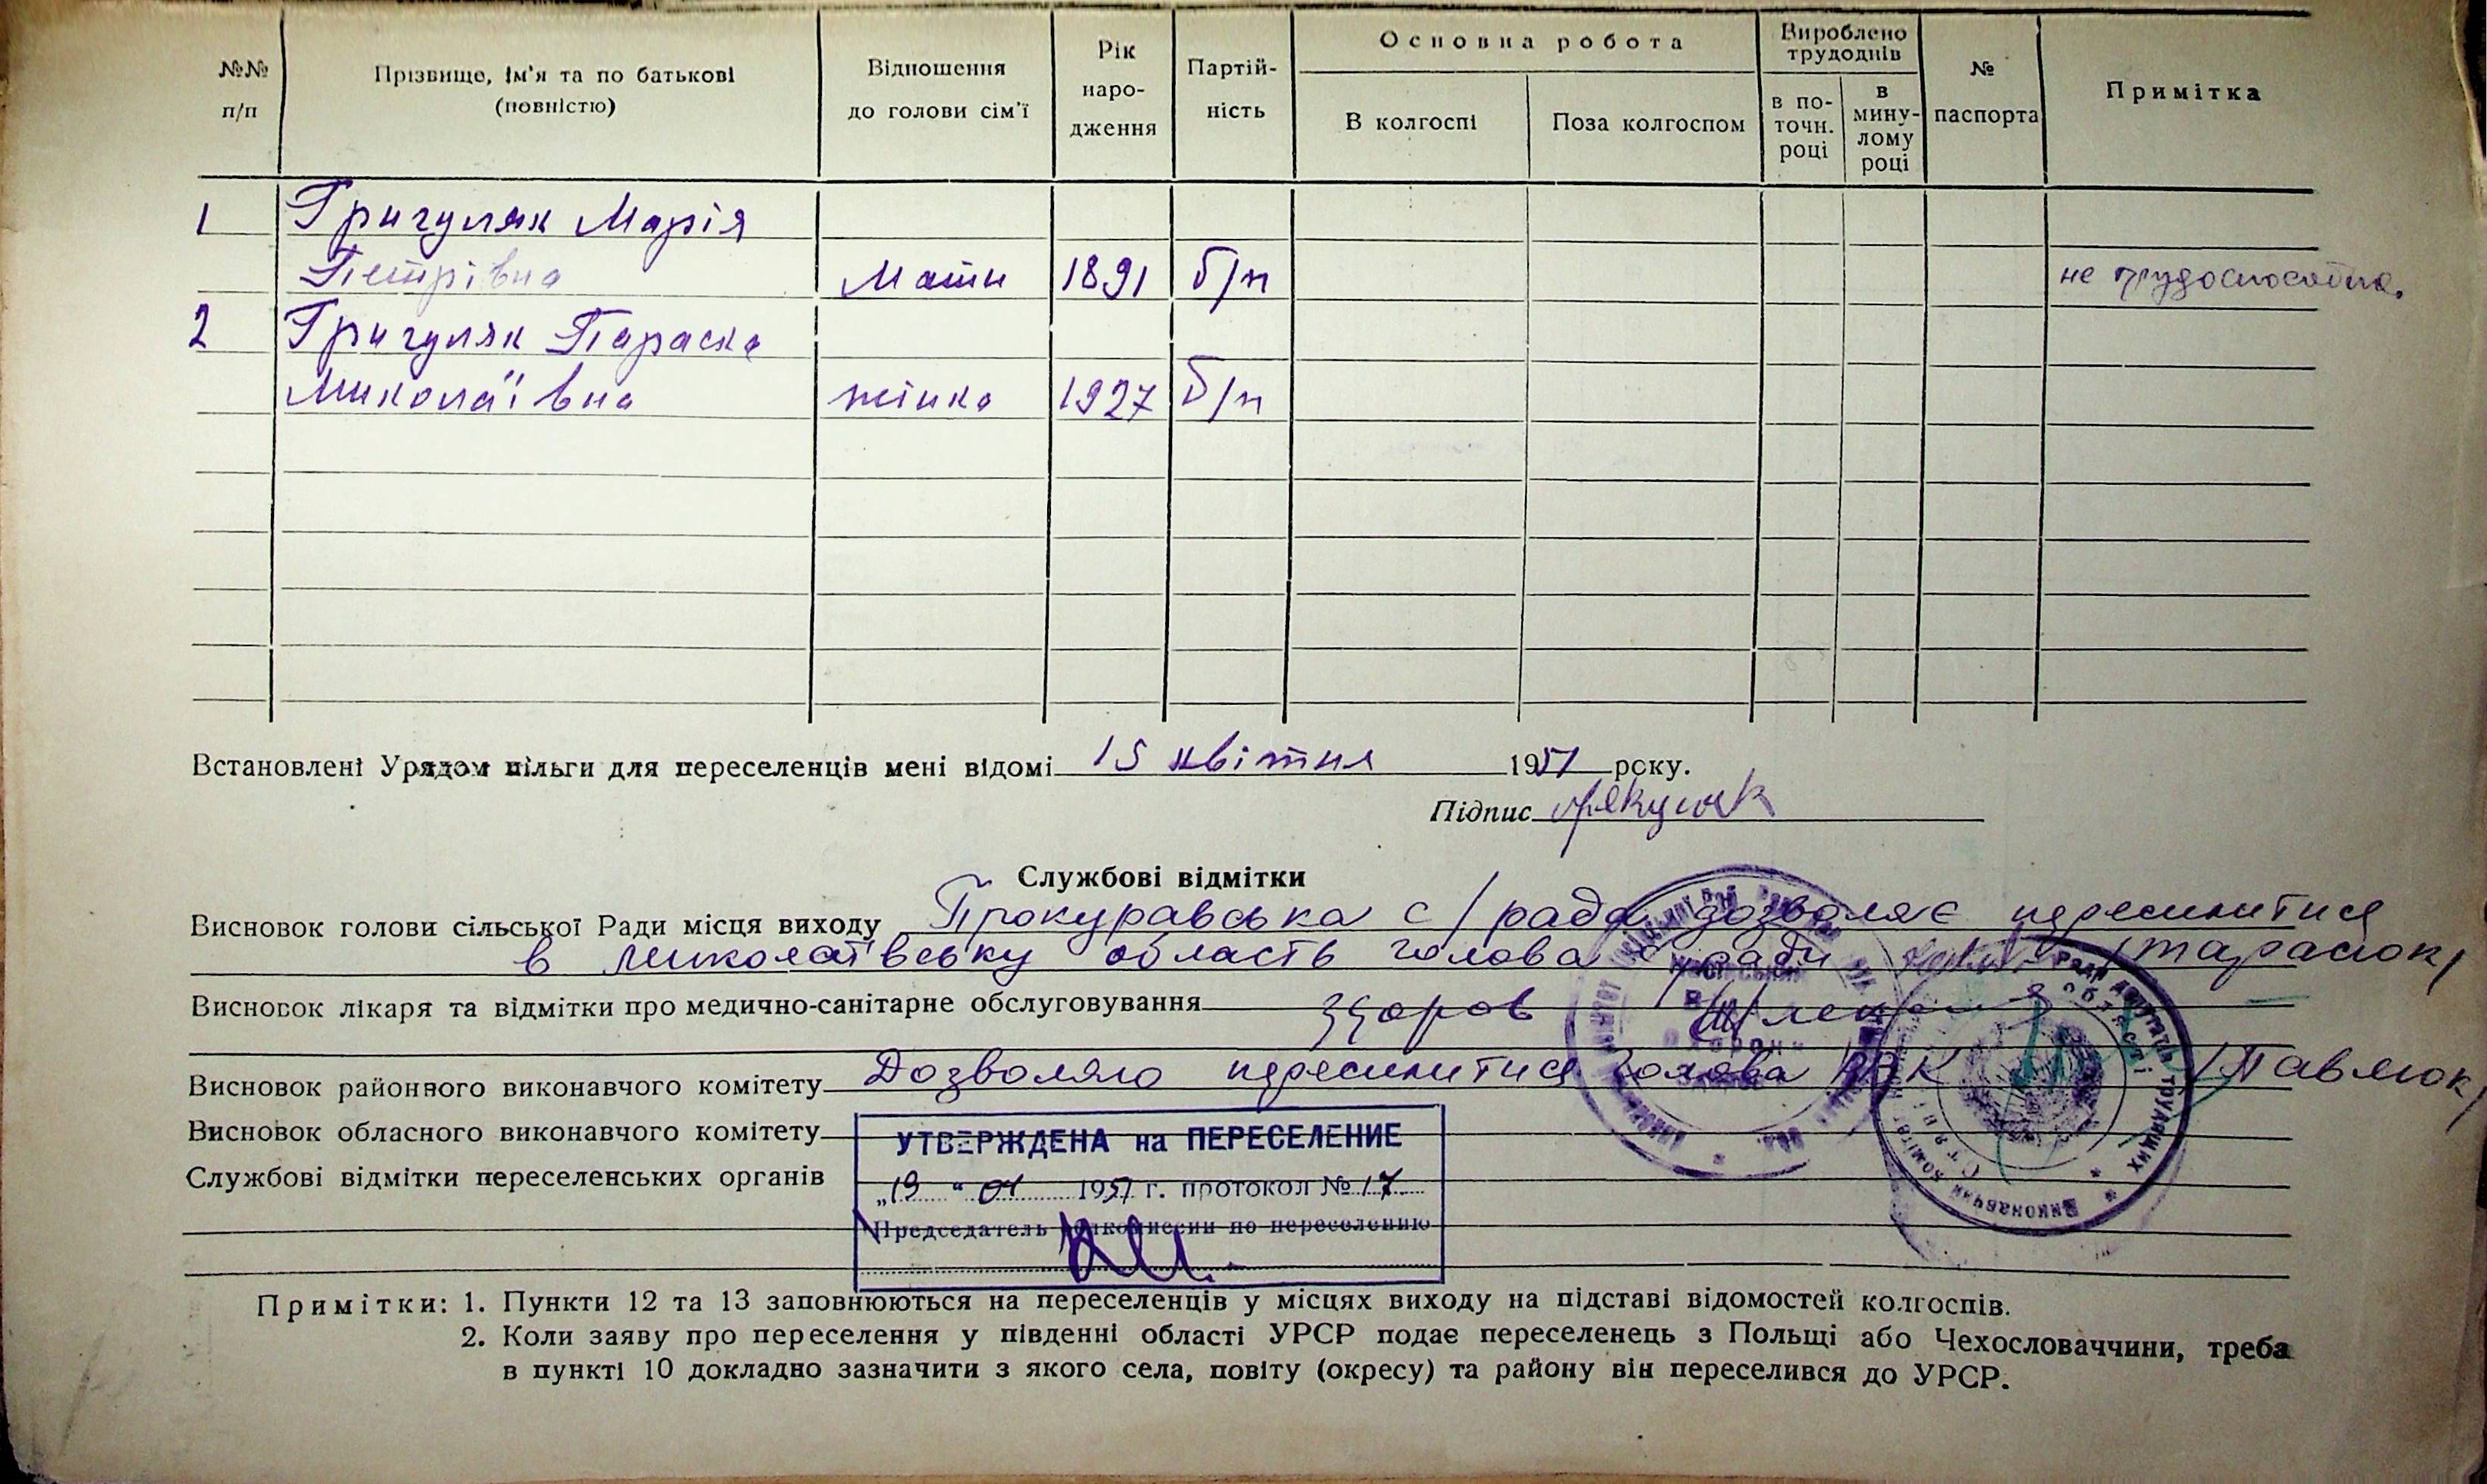 №№ п/п Прізвище, ім'я та по батькові (повністю) Відношення до голови сім'ї Рік наро-дження Партій-ність Основна робота Вироблено трудоднів № паспорта Примітка
В колгоспі Поза колгоспом в по-точн. році в мину-лому році
1 Григуляк Марія
Петрівна Мати 1891 б/п не трудоспособна.
2 Григуляк Параска
Миколаївна жінка 1927 б/п
Встановлені Урядом пільги для переселенців мені відомі 15 квітня 1951 року.
Підпис
Службові відмітки
Висновок голови сільської Ради місця виходу Прокуравська с/рада дозволяє переселитися
в Миколаївську область голова с/ради /Тарасюк/
Висновок лікаря та відмітки про медично-санітарне обслуговування здоров
Висновок районного виконавчого комітету Дозволяю переселитися голова РВК /Павлюк/
Висновок обласного виконавчого комітету
УТВЕРЖДЕНА на ПЕРЕСЕЛЕНИЕ
Службові відмітки переселенських органів
„19“ 04 1951 г. протокол № 17
Председатель облкомиссии по переселению
Примітки: 1. Пункти 12 та 13 заповнюються на переселенців у місцях виходу на підставі відомостей колгоспів.
2. Коли заяву про переселення у південні області УРСР подає переселенець з Польщі або Чехословаччини, треба
в пункті 10 докладно зазначити з якого села, повіту (окресу) та району він переселився до УРСР.